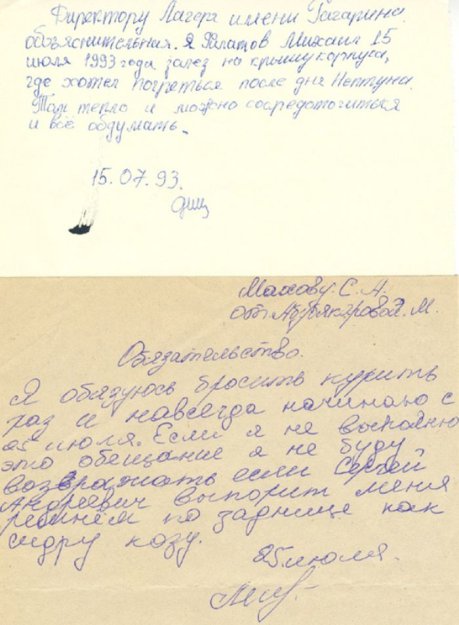 Директору Лагеря имени Гагарина.
объяснительная. Я Филатов Михаил 15
июля 1993 года залез на крышу корпуса,
где хотел погреться после дня Нептуна.
Там тепло и можно сосредоточиться
и всё обдумать.
15.07.93.
Махову. С. А.
от М.
Обязательство.
Я обязуюсь бросить курить
раз и навсегда начинаю с
25 июля. Если я не выполню
это обещание я не буду
возвражать если Сергей
Андреевич выпорит меня
ремнём по заднице как
сидру козу.
25 июля.